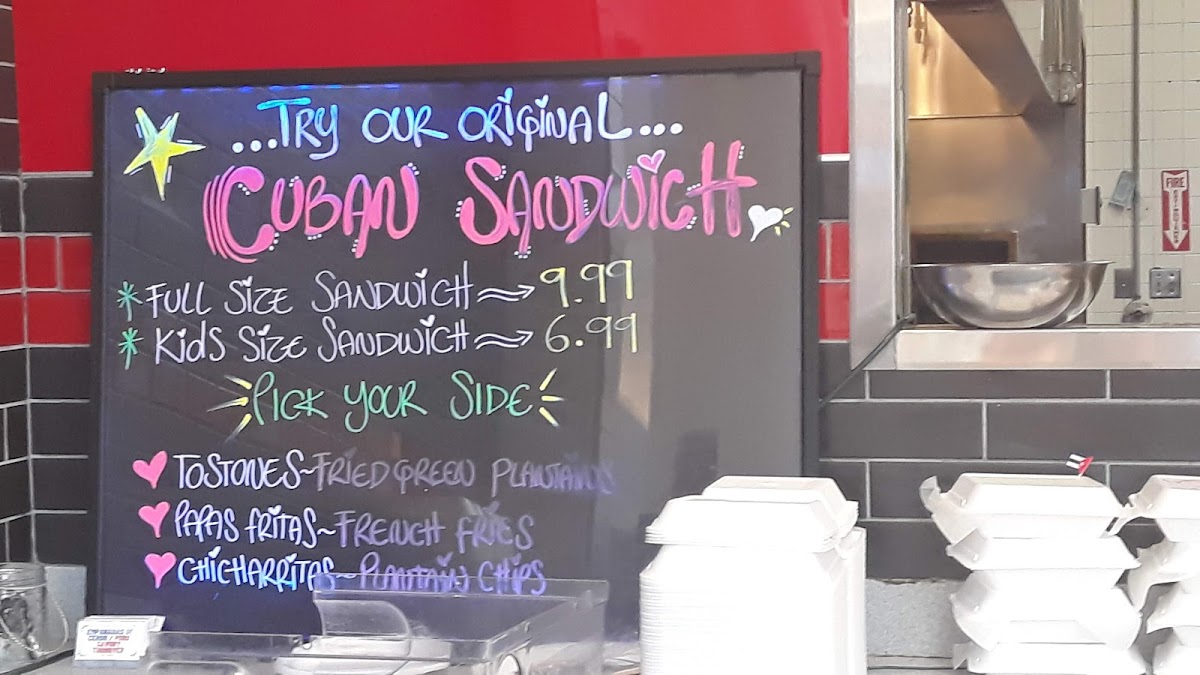 ...TRY OUR ORIGINAL...
CUBAN SANDWICH
* FULL SIZE SANDWICH ⇝ 9.99
* KIDS SIZE SANDWICH ⇝ 6.99
PICK YOUR SIDE
♥ TOSTONES~FRIED GREEN PLANTAINS
♥ PAPAS FRITAS~FRENCH FRIES
♥ CHICHARRITAS~PLANTAIN CHIPS
FIRE